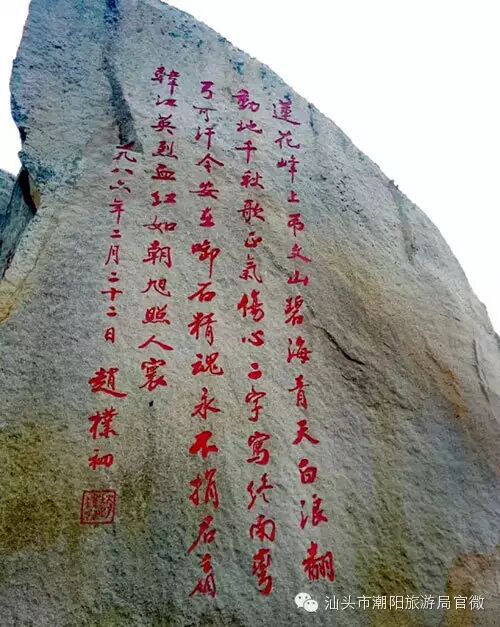 蓮花峰上吊文山碧海青天白浪翻
動地千秋歌正氣傷心二字寫終南彎
弓可汗今安在啣石精魂永不捐君看
韓江英烈血紅如朝旭照人寰
一九八六年二月二十二日 趙樸初
汕头市潮阳旅游局官微